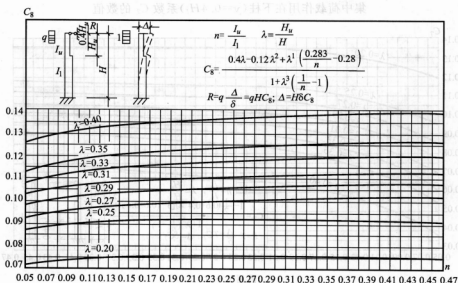 C₈
q
R
0.4Hᵤ
Hᵤ
H
Iᵤ
Iₗ
1
Δ
n= Iᵤ/Iₗ λ= Hᵤ/H
C₈= (0.4λ-0.12λ²+λ¹(0.283/n -0.28)) / (1+λ³(1/n -1))
R=q Δ/δ =qHC₈; Δ=HδC₈
0.14
0.13
0.12
0.11
0.10
0.09
0.08
0.07
λ=0.40
λ=0.35
λ=0.33
λ=0.31
λ=0.29
λ=0.27
λ=0.25
λ=0.20
n
0.05 0.07 0.09 0.11 0.13 0.15 0.17 0.19 0.21 0.23 0.25 0.27 0.29 0.31 0.33 0.35 0.37 0.39 0.41 0.43 0.45 0.47